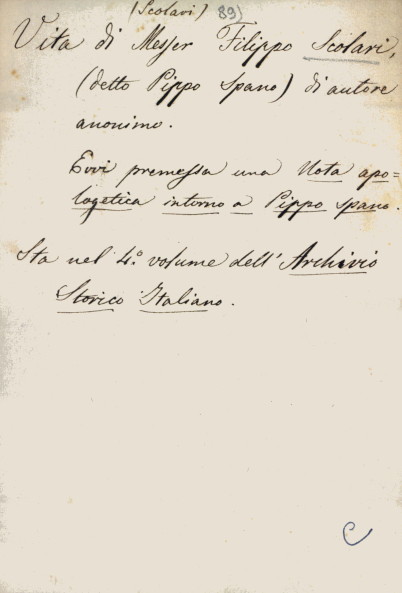 (Scolari) 89)
Vita di Messer Filippo Scolari,
(detto Pippo Spano) di autore
anonimo.
Evvi premessa una Nota apo=
logetica intorno a Pippo Spano.
Sta nel 4.° volume dell'Archivio
Storico Italiano.
C